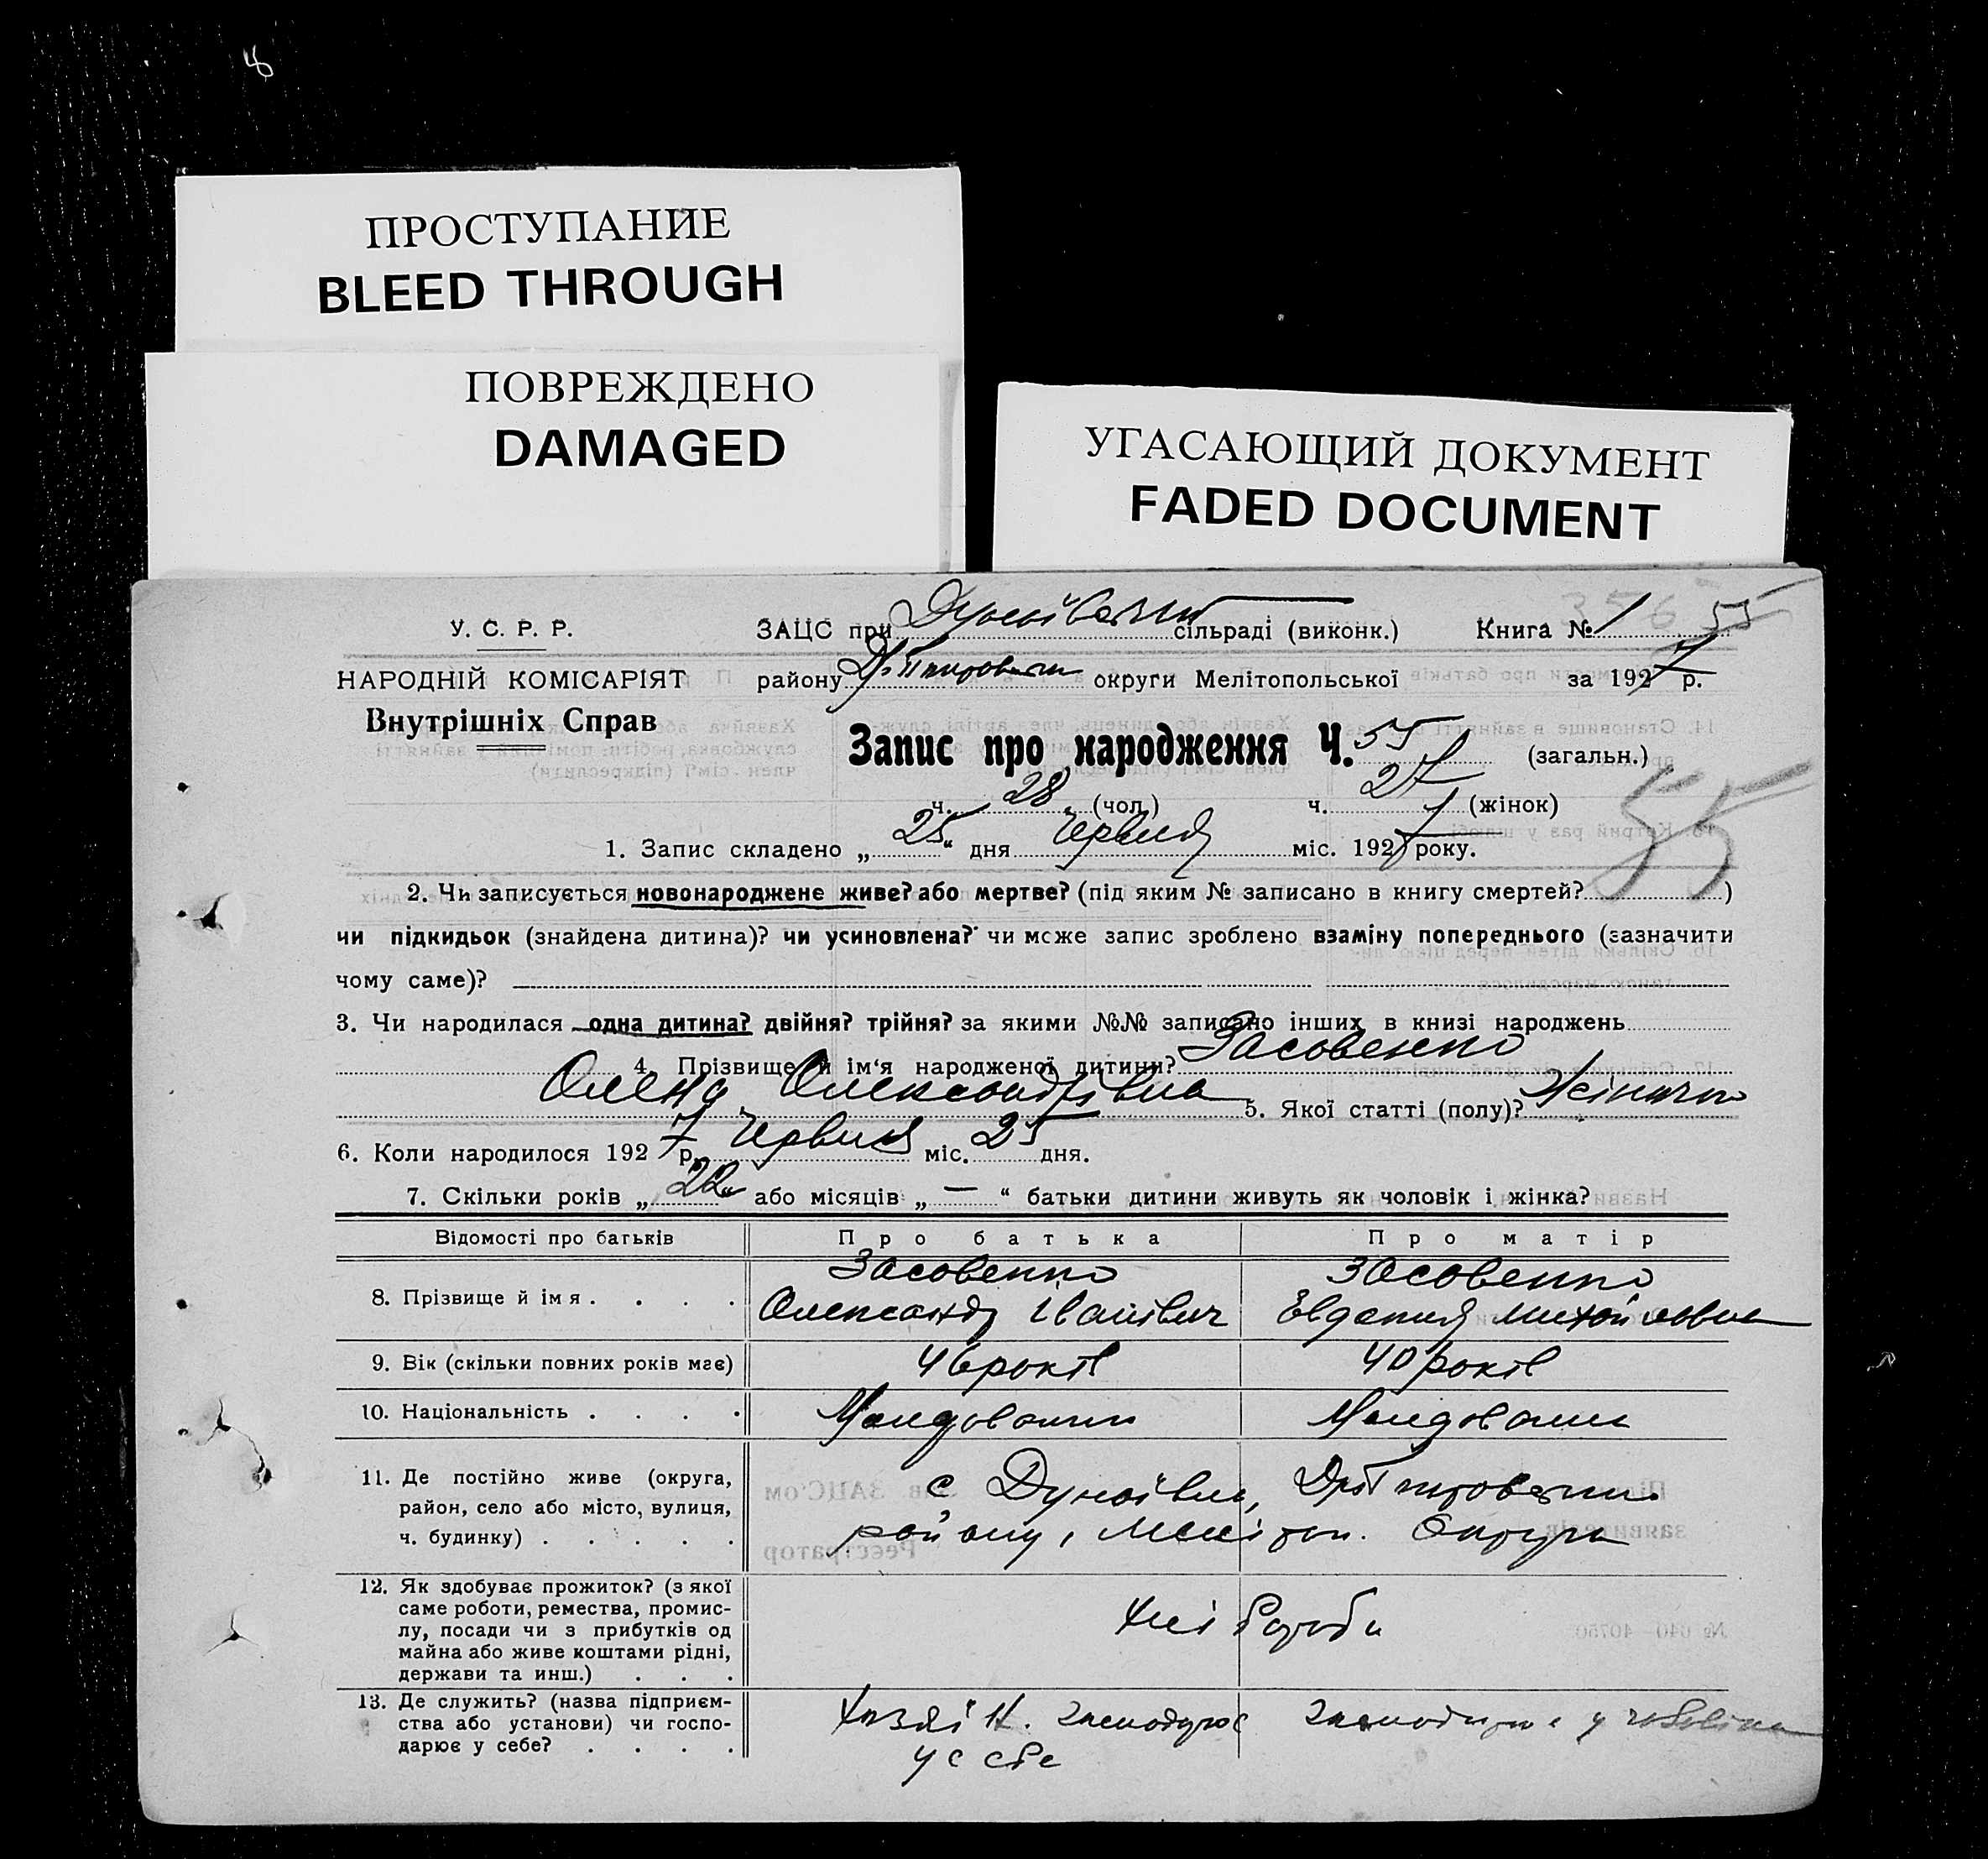 8
ПРОСТУПАНИЕ
BLEED THROUGH
ПОВРЕЖДЕНО
DAMAGED
УГАСАЮЩИЙ ДОКУМЕНТ
FADED DOCUMENT
У. С. Р. Р.
ЗАЦС при сільраді (виконк.) Книга № 1 55
НАРОДНІЙ КОМІСАРІЯТ
району округи Мелітопольської за 1927 р.
Внутрішніх Справ
Запис про народження Ч. 55 (загальн.)
ч. 28 (чол.) ч. 27 (жінок)
55
1. Запис складено „25“ дня Червня міс. 1927 року.
2. Чи записується новонароджене живе? або мертве? (під яким № записано в книгу смертей? )
чи підкидьок (знайдена дитина)? чи усиновлена? чи може запис зроблено взаміну попереднього (зазначити
чому саме)?
3. Чи народилася одна дитина? двійня? трійня? за якими №№ записано інших в книзі народжень
4. Прізвище й ім‘я народженої дитини? Засовенко
Олена Олександрівна 5. Якої статті (полу)? Жіночо
6. Коли народилося 1927 р. Червня міс. 25 дня.
7. Скільки років „22“ або місяців „—“ батьки дитини живуть як чоловік і жінка?
Відомості про батьків Про батька Про матір
8. Прізвище й імя . . . . Засовенко Олександр Іванівич Засовенко Евдокия Михайловна
9. Вік (скільки повних років має) 46 років 40 років
10. Національність . . . .
11. Де постійно живе (округа,
район, село або місто, вулиця,
ч. будинку) . . . . .
с Дунаівка,
району, Мелітоп. Округи
12. Як здобуває прожиток? (з якої
саме роботи, ремества, промис-
лу, посади чи з прибутків од
майна або живе коштами рідні,
держави та инш.) . . .
Хлібороби
13. Де служить? (назва підприєм-
ства або установи) чи госпо-
дарює у себе? . . . .
Хазяїн. господарює
у себе